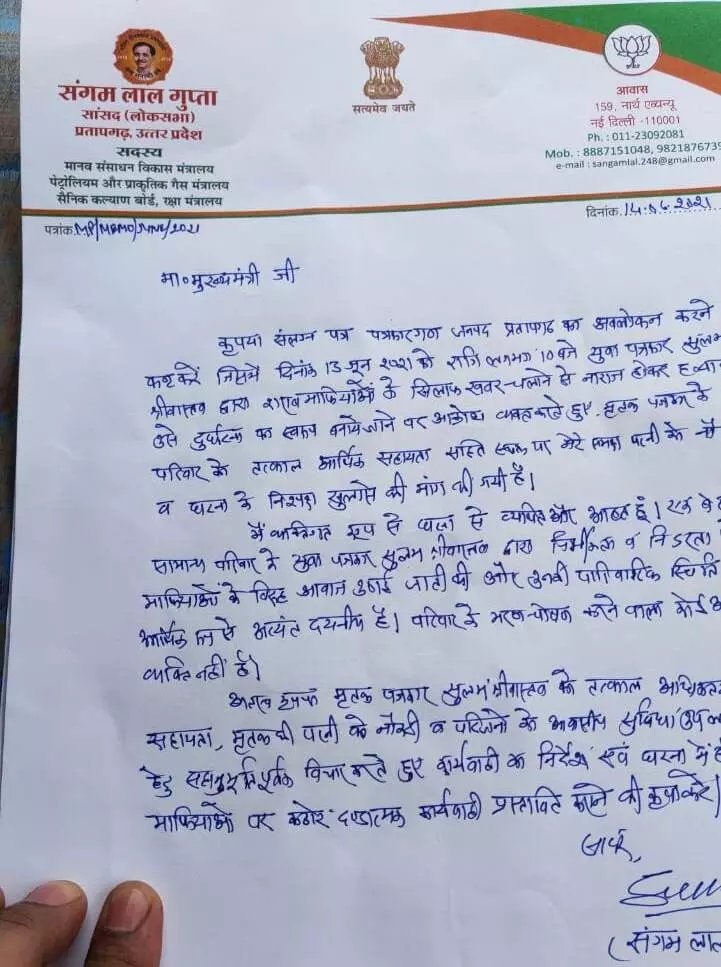 संगम लाल गुप्ता
सांसद (लोकसभा)
प्रतापगढ़, उत्तर प्रदेश
सदस्य
मानव संसाधन विकास मंत्रालय
पेट्रोलियम और प्राकृतिक गैस मंत्रालय
सैनिक कल्याण बोर्ड, रक्षा मंत्रालय
सत्यमेव जयते
आवास
159, नार्थ एव्न्यू
नई दिल्ली -110001
Ph. : 011-23092081
Mob. : 8887151048, 982187673
e-mail : sangamlal.248@gmail.com
पत्रांक.
दिनांक. 14.06.2021
मा० मुख्यमंत्री जी
कृपया संलग्न पत्र पत्रकारगण जनपद प्रतापगढ का अवलोकन करने
कष्ट करें जिसमें दिनांक 13 जून 2021 को रात्रि लगभग 10 बजे युवा पत्रकार सुलभ
श्रीवास्तव द्वारा शराब माफियाओं के खिलाफ खबर चलाने से नाराज होकर हत्या
उसे दुर्घटना का स्वरूप बनाये जाने पर आक्रोश व्यक्त करते हुए मृतक पत्रकार के
परिवार के तत्काल आर्थिक सहायता पर पत्नी के
व घटना के निष्पक्ष खुलासे की मांग की गयी है।
मैं व्यक्तिगत रूप से घटना से व्यथित और आहत हूं। एक
सामान्य परिवार के युवा पत्रकार सुलभ श्रीवास्तव द्वारा निर्भीकता व निडरता
माफियाओं के विरुद्ध आवाज उठाई जाती थी और उनकी पारिवारिक स्थिति
आर्थिक रूप से अत्यंत दयनीय है। परिवार के भरण-पोषण करने वाला कोई
व्यक्ति नहीं है।
अतएव कृपया मृतक पत्रकार सुलभ श्रीवास्तव के तत्काल आर्थिक
सहायता, मृतक की पत्नी को नौकरी व परिजनों को आवासीय सुविधा
हेतु सहानुभूतिपूर्वक विचार करते हुए कार्यवाही का निर्देश एवं घटना में
माफियाओं पर कठोर दण्डात्मक कार्यवाही प्रस्तावित करने की कृपा करें।
सादर,
(संगम लाल